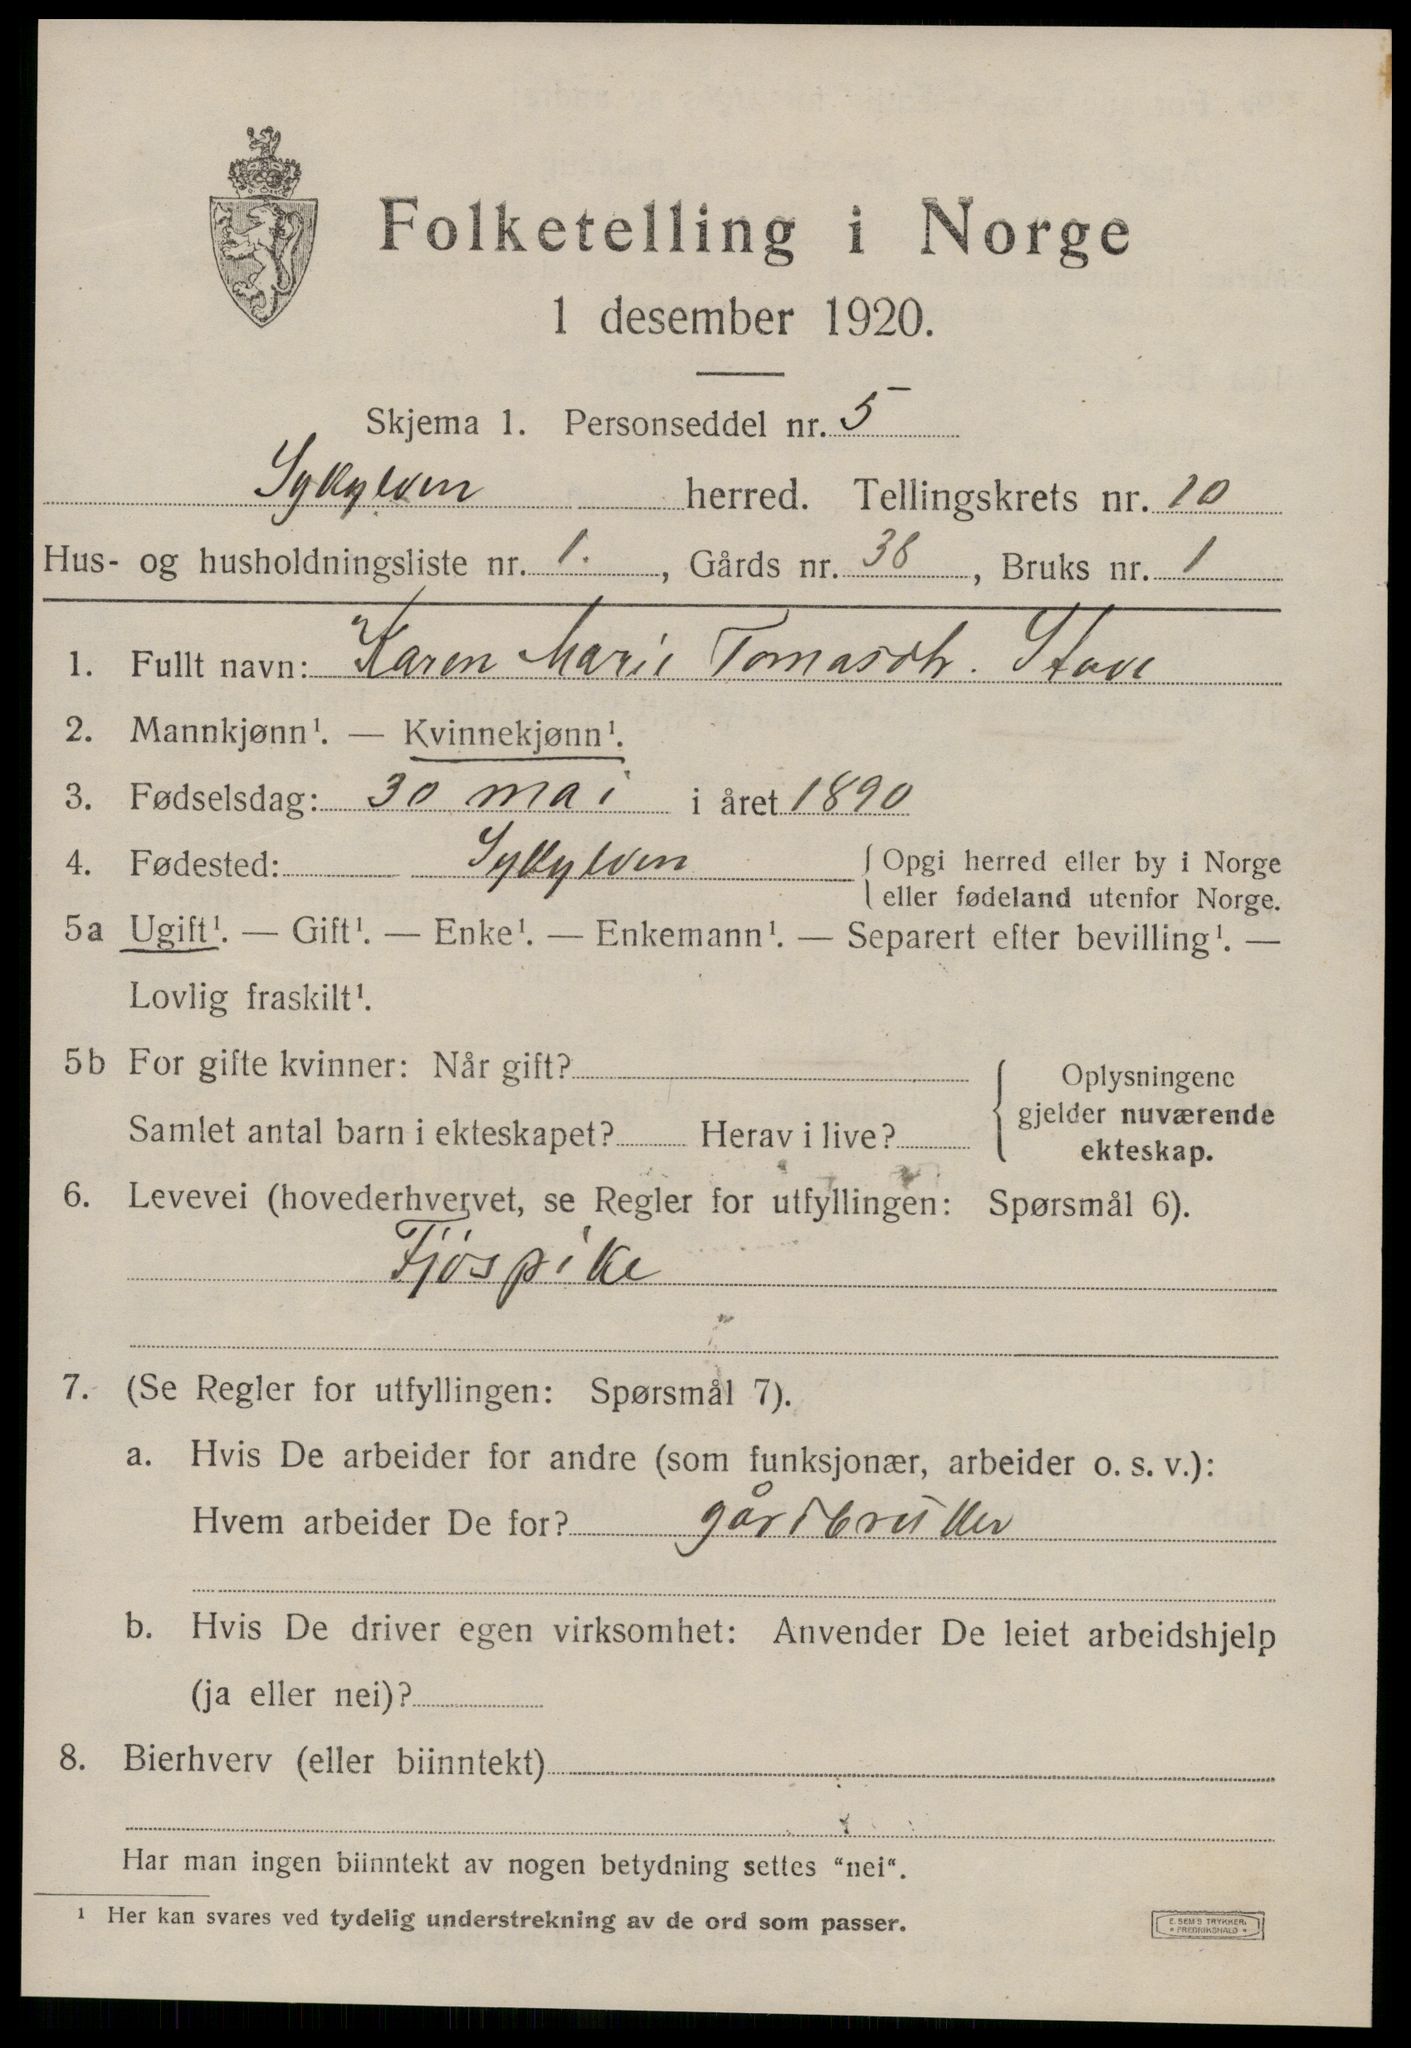 Folketelling i Norge
1 desember 1920.
Skjema 1. Personseddel nr. 5
Sykkylven herred. Tellingskrets nr. 10
Hus- og husholdningsliste nr. 1. , Gårds nr. 38 , Bruks nr. 1
1. Fullt navn: Karen Marie Tomasdtr. Stave
2. Mannkjønn¹. — Kvinnekjønn¹.
3. Fødselsdag: 30 mai i året 1890
4. Fødested: Sykkylven { Opgi herred eller by i Norge
eller fødeland utenfor Norge.
5a Ugift¹. — Gift¹. — Enke¹. — Enkemann¹. — Separert efter bevilling¹. —
Lovlig fraskilt¹.
5b For gifte kvinner: Når gift?
Samlet antal barn i ekteskapet? Herav i live?
{ Oplysningene
gjelder nuværende
ekteskap.
6. Levevei (hovederhvervet, se Regler for utfyllingen: Spørsmål 6).
Fjøspike
7. (Se Regler for utfyllingen: Spørsmål 7).
a. Hvis De arbeider for andre (som funksjonær, arbeider o. s. v.):
Hvem arbeider De for? gårdbruker
b. Hvis De driver egen virksomhet: Anvender De leiet arbeidshjelp
(ja eller nei)?
8. Bierhverv (eller biinntekt)
Har man ingen biinntekt av nogen betydning settes “nei“.
¹ Her kan svares ved tydelig understrekning av de ord som passer.
E. SEM'S TRYKKERI
* FREDRIKSHALD *